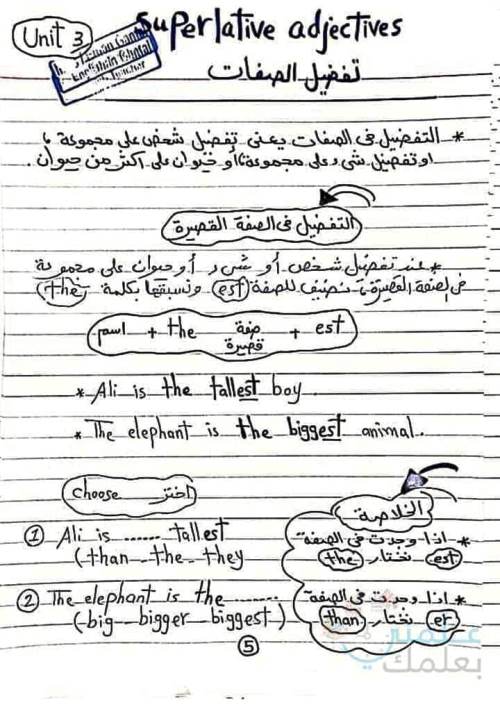 Unit 3
Superlative adjectives
تفضيل الصفات
* التفضيل فى الصفات يعنى تفضيل شخص على مجموعة
او تفضيل شىء على مجموعة أو حيوان على أكثر من حيوان.
التفضيل فى الصفة القصيرة
* عند تفضيل شخص أو شىء أو حيوان على مجموعة
فى الصفة القصيرة نضيف للصفة (est) ونسبقها بكلمة (the)
اسم + the صفة قصيرة + est
* Ali is the tallest boy
* The elephant is the biggest animal.
choose اختر
① Ali is ....... tallest
(than - the - they
② The elephant is the .........
(big - bigger - biggest)
الخلاصة
* اذا وجدت فى الصفة
est نختار the
* اذا وجدت فى الصفة
er نختار than
⑤
علمني
بعلمك